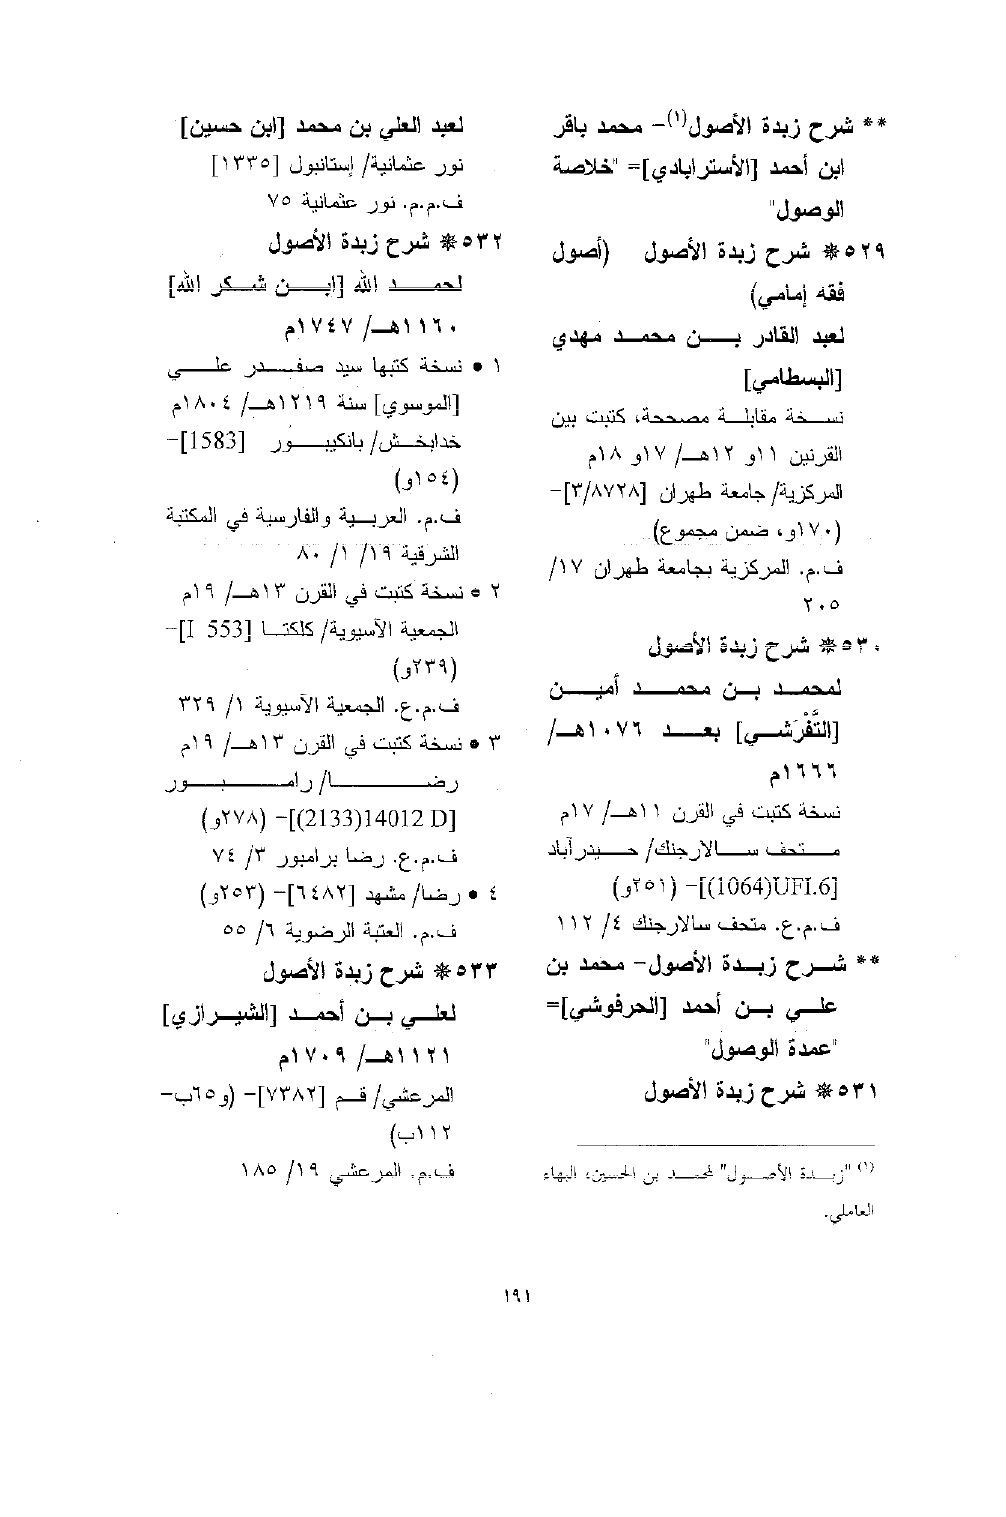 ** شرح زبدة الأصول(١)- محمد باقر
ابن أحمد [الأسترابادي]= "خلاصة
الوصول"
٥٢٩* شرح زبدة الأصول (أصول
فقه إمامي)
لعبد القادر بن محمد مهدي
[البسطامي]
نسخة مقابلة مصححة، كتبت بين
القرنين ١١و ١٢هـ/ ١٧و ١٨م
المركزية/ جامعة طهران [٣/٨٧٢٨]-
(١٧٠و، ضمن مجموع)
ف.م. المركزية بجامعة طهران ١٧/
٢٠٥
٥٣٠* شرح زبدة الأصول
لمحمد بن محمد أمين
[التَّفْرَشي] بعد ١٠٧٦هـ/
١٦٦٦م
نسخة كتبت في القرن ١١هـ/ ١٧م
متحف سالارجنك/ حيدرآباد
[1064)UFI.6)]- (٢٥١و)
ف.م.ع. متحف سالارجنك ٤/ ١١٢
** شرح زبدة الأصول- محمد بن
علي بن أحمد [الحرفوشي]=
"عمدة الوصول"
٥٣١* شرح زبدة الأصول
(١) "زبدة الأصول" لمحمد بن الحسين، البهاء
العاملي.
لعبد العلي بن محمد [ابن حسين]
نور عثمانية/ إستانبول [١٣٣٥]
ف.م.م. نور عثمانية ٧٥
٥٣٢* شرح زبدة الأصول
لحمد الله [ابن شكر الله]
١١٦٠هـ/ ١٧٤٧م
١ • نسخة كتبها سيد صفدر علي
[الموسوي] سنة ١٢١٩هـ/ ١٨٠٤م
خدابخش/ بانكيبور [1583]-
(١٥٤و)
ف.م. العربية والفارسية في المكتبة
الشرقية ١٩/ ١/ ٨٠
٢ • نسخة كتبت في القرن ١٣هـ/ ١٩م
الجمعية الآسيوية/ كلكتا [I 553]-
(٢٣٩و)
ف.م.ع. الجمعية الآسيوية ١/ ٣٢٩
٣ • نسخة كتبت في القرن ١٣هـ/ ١٩م
رضا/ رامبور
[2133)14012 D)]- (٢٧٨و)
ف.م.ع. رضا برامبور ٣/ ٧٤
٤ • رضا/ مشهد [٦٤٨٢]- (٢٥٣و)
ف.م. العتبة الرضوية ٦/ ٥٥
٥٣٣* شرح زبدة الأصول
لعلي بن أحمد [الشيرازي]
١١٢١هـ/ ١٧٠٩م
المرعشي/ قم [٧٣٨٢]- (و٦٥ب-
١١٢ب)
ف.م. المرعشي ١٩/ ١٨٥
١٩١